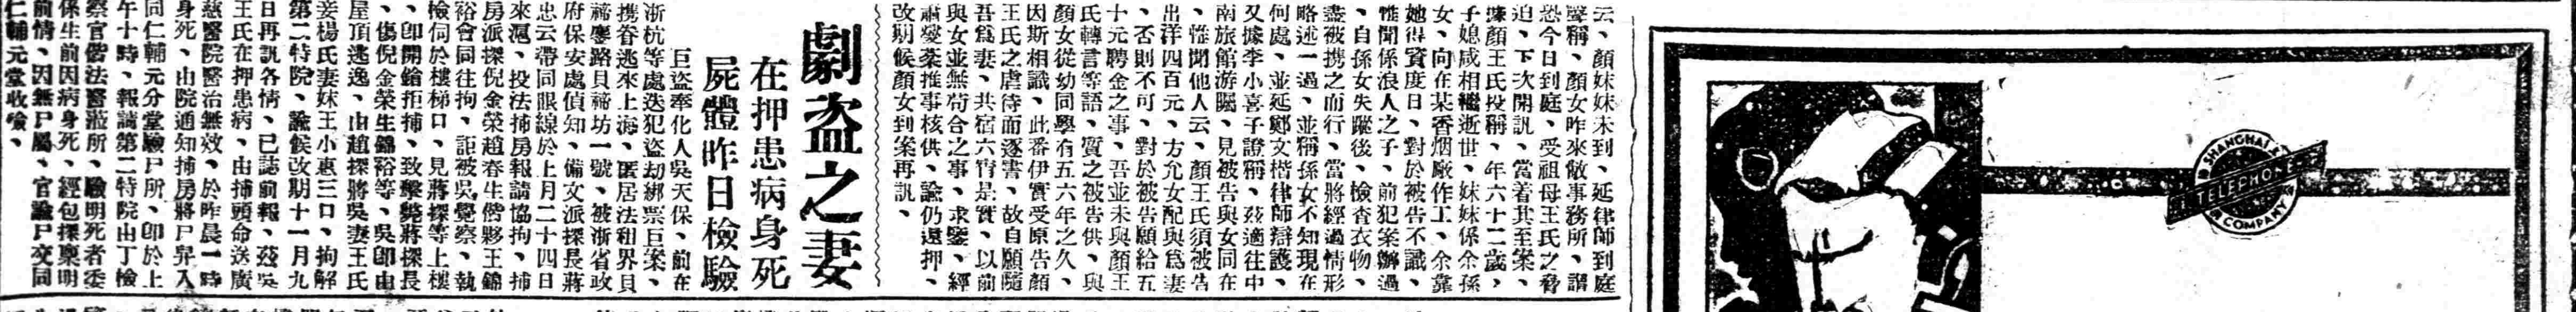 云、顏妹妹未到、延律師到庭
聲稱、顏女昨來敝事務所、謂
恐今日到庭、受祖母王氏之脅
迫、下次開訊、當着其至案、
據顏王氏投稱、年六十二歲、
子媳咸相繼逝世、妹妹係余孫
女、向在某香烟廠作工、余靠
她得資度日、對於被告不識、
惟聞係浪人之子、前犯案辦過
、自孫女失蹤後、檢查衣物、
盡被携之而行、當將經過情形
略述一過、並稱孫女不知現在
何處、並延鄭文楷律師辯護、
又據李小喜子證稱、茲適往中
南旅館游閱、見被告與女同在
、惟聞他人云、顏王氏須被告
出洋四百元、方允女配與爲妻
、否則不可、對於被告願給五
十元聘金之事、吾並未與顏王
氏轉言等語、質之被告供、與
顏女從幼同學有五六年之久、
因斯相識、此番伊實受原告顏
王氏之虐待而逐害、故自願隨
吾爲妻、共宿六宵是實、以前
與女並無苟合之事、求鑒、經
蕭燮棻推事核供、諭仍還押、
改期候顏女到案再訊、
劇盜之妻
在押患病身死
屍體昨日檢驗
巨盜奉化人吳天保、前在
浙杭等處迭犯盜刧綁票巨案、
携眷逃來上海、匿居法租界貝
禘鏖路貝禘坊一號、被浙省政
府保安處偵知、備文派探長蔣
忠云帶同眼線於上月二十四日
來滬、投法捕房報請協拘、捕
房派探倪金榮趙春生偕夥王錦
裕會同往拘、詎被吳覺察、執
檢伺於樓梯口、見蔣探等上樓
、卽開鎗拒捕、致擊斃蔣探長
、傷倪金榮生錦裕等、吳卽由
屋頂逃逸、由趙探將吳妻王氏
妾楊氏妻妹王小惠三口、拘解
第二特院、諭候改期十一月九
日再訊各情、已誌前報、茲吳
王氏在押患病、由捕頭命送廣
慈醫院醫治無效、於昨晨一時
身死、由院通知捕房將尸舁入
同仁輔元分堂驗尸所、卽於上
午十時、報請第二特院由丁檢
察官偕法醫蒞所、驗明死者委
保生前因病身死、經包探稟明
前情、因無尸屬、官諭尸交同
仁輔元堂收殮、
SHANGHAI
TELEPHONE
COMPANY